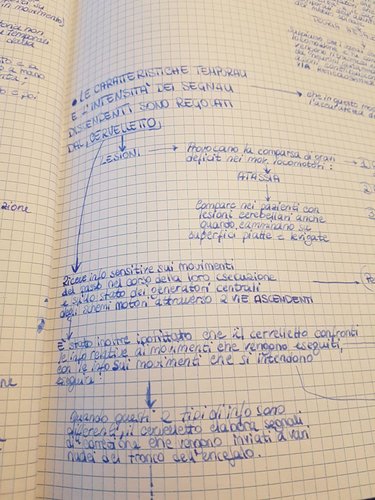 • LE CARATTERISTICHE TEMPORALI
E L'INTENSITÀ DEI SEGNALI
DISCENDENTI SONO REGOLATI
DAL CERVELLETTO
LESIONI
Provocano la comparsa di gravi
deficit nei mov. locomotori:
ATASSIA
Compare nei pazienti con
lesioni cerebellari anche
quando camminano su
superfici piatte e levigate
Riceve info sensitive sui movimenti
del passo nel corso della loro esecuzione
e sullo stato dei generatori centrali
degli schemi motori attraverso 2 VIE ASCENDENTI
È stato inoltre ipotizzato che il cervelletto confronti
le info relative ai movimenti che vengono eseguiti,
con le info sui movimenti che si intendono
eseguire!
Quando questi 2 tipi di info sono
differenti, il cervelletto elabora segnali
di correzione che vengono inviati a vari
nuclei del tronco dell'encefalo.
che in questo modo